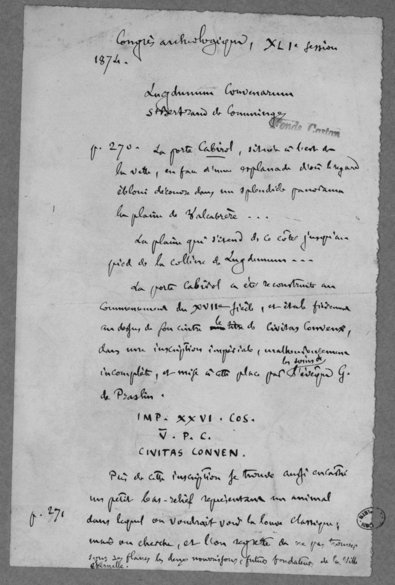 Congrès archéologique, XLIe session
1874.
Lugdunum Convenarum
St Bertrand de Comminges
Fonds Cartan
p. 270. La porte Cabirol, située à l'est de
la ville, en face d'une esplanade d'où le regard
ébloui découvre dans un splendide panorama
la plaine de Valcabrère ---
La plaine qui s'étend de ce côté jusqu'au
pied de la colline de Lugdunum ---
La porte Cabirol a été reconstruite au
commencement du XVIIe siècle, et étale
au dessus de son cintre le titre de Civitas Convenæ,
dans une inscription impériale, malheureusement
incomplète, et mise à cette place par les soins de l'évêque G.
de Praslin.
IMP. XXVI. COS.
V. P. C.
CIVITAS CONVEN.
Près de cette inscription se trouve aussi encastré
un petit bas-relief représentant un animal
p. 271 dans lequel on voudrait voir la louve classique;
mais on cherche, et l'on regrette de ne pas trouver
sous ses flancs les deux nourrissons, futurs fondateurs de la Ville
éternelle.